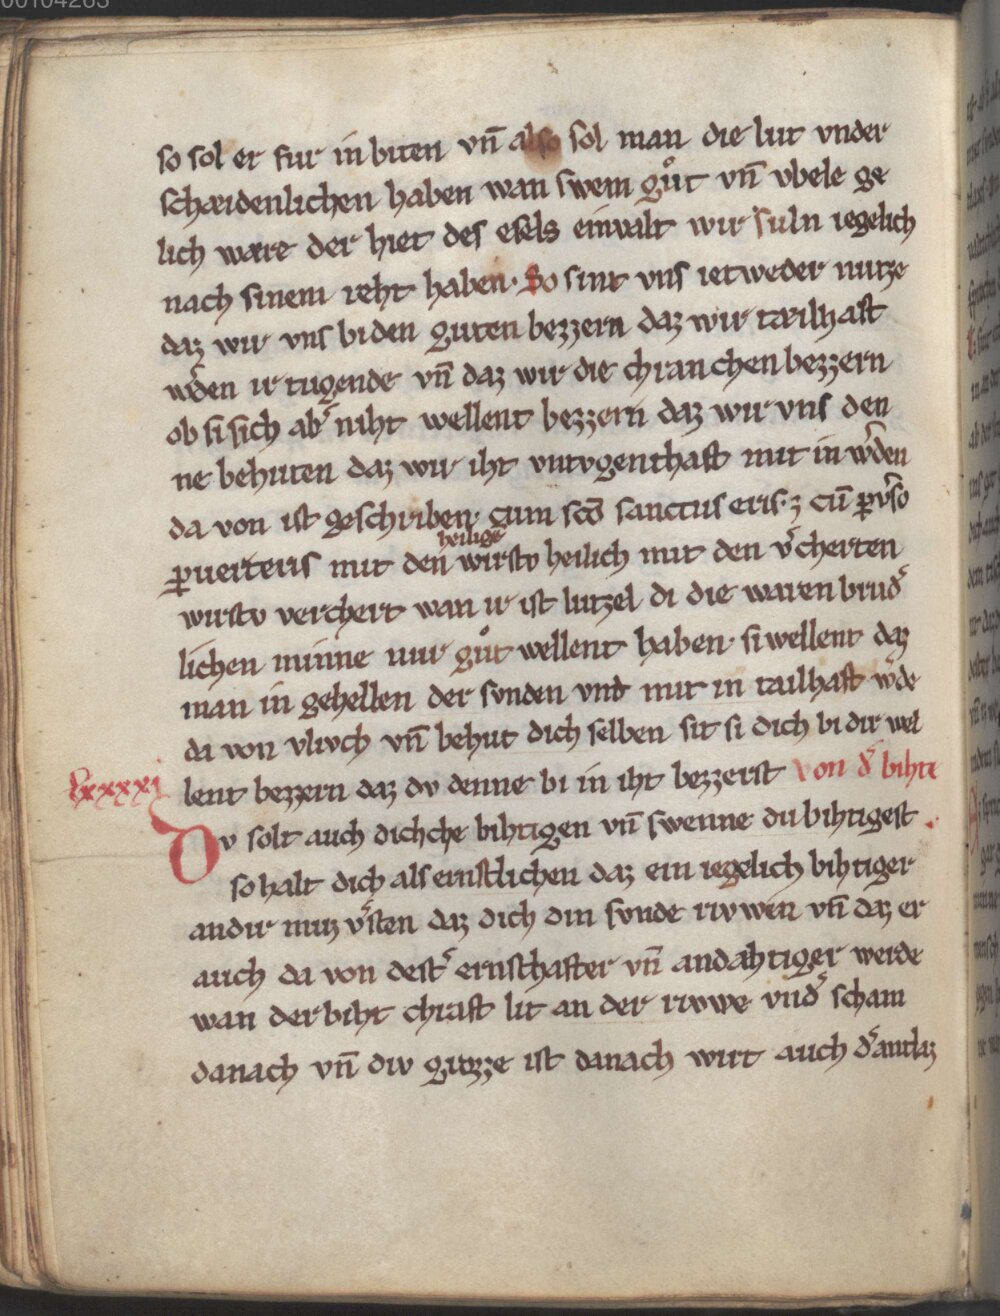 so sol er fur in biten vn̄ also sol man die lut vnder
schaidenlichen haben wan swem gůt vn̄ vbele ge
lich ware der hiet des esels einvalt wir suln iegelich
nach sinem reht haben· So sint vns ietweder nutze
daz wir vns bi den guten bezzern daz wir tailhaft
w͛den ir tugende vn̄ daz wir die chranchen bezzern
ob si sich ab͛ niht wellent bezzern daz wir vns den
ne behuten daz wir iht vntvgenthaft mit in w͛den
da von ist geschriben· cum sc̄o sanctus eris· ⁊ cū ꝑv͛so
ꝑuerteris mit den heilige͛ wirstv heilich mit den v͛cherten
wirstv verchert wan ir ist lutzel di die waren brud͛
lichen minne mit gůt wellent haben· si wellent daz
man in gehellen der svnden vnd mit in tailhaft w͛de
da von vlivch vn̄ behut dich selben sit si dich bi dir wel
lent bezzern daz dv denne bi in iht bezzerst Von d͛ bihte
lxxxxi
Dv solt auch dichche bihtigen vn̄ swenne du bihtigest
so halt dich als ernstlichen daz ein iegelich bihtiger
an dir muz v͛sten daz dich din svnde rivwen vn̄ daz er
auch da von dest͛ ernsthafter vn̄ andahtiger werde
wan der biht chraft lit an der rivwe vnd͛ scham
danach vn̄ div guzze ist danach wirt auch d͛ antlaz